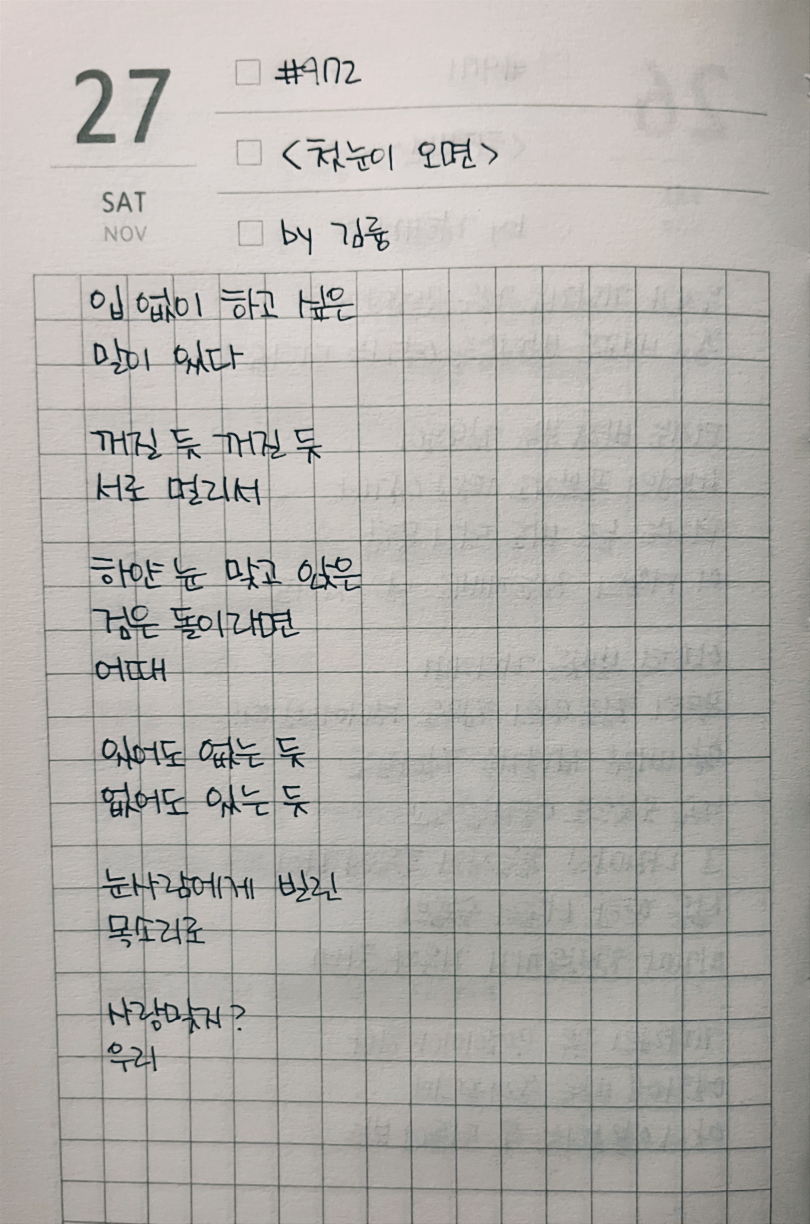 27
SAT
NOV
#972
<첫눈이 오면>
by 김륭
입 없이 하고 싶은
말이 있다
꺼질 듯 꺼질 듯
서로 멀리서
하얀 눈 맞고 앉은
검은 돌이라면
어때
있어도 없는 듯
없어도 있는 듯
눈사람에게 빌린
목소리로
사랑맞지?
우리